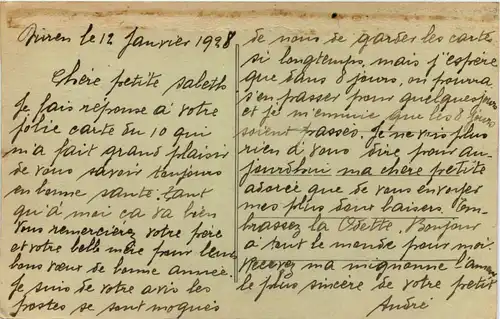 Duren le 12 Janvier 1928
Chère petite sabeth
Je fais réponse à votre
jolie carte du 10 qui
m'a fait grand plaisir
de vous savoir toujours
en bonne santé. Tant
qu'à moi ça va bien
Vous remercierez votre père
et votre belle mère pour leurs
bons vœux de bonne année.
Je suis de votre avis les
postes se sont moqués
de nous de garder les cartes
si longtemps, mais j'espère
que dans 8 jours, on pourra
s'en passer pour quelques jours
et je m'ennuie que les 8 jours
soient passés. Je ne vois plus
rien à vous dire pour au-
jourdhui ma chère petite
adorée que de vous envoyer
mes plus doux baisers. Em-
brassez la Odette. Bonjour
à tout le monde pour moi.
Recevez ma mignonne l'amour
le plus sincère de votre petit
André